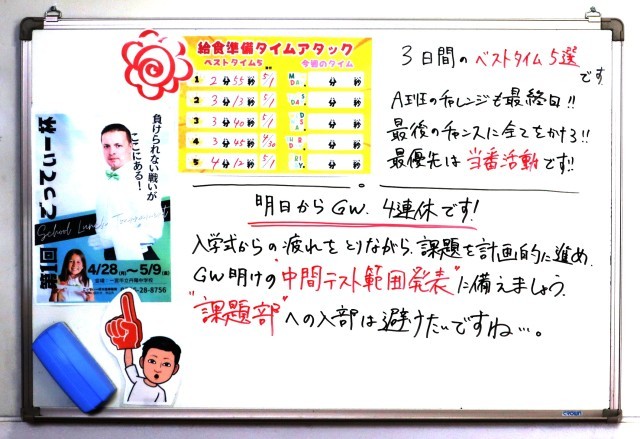 給食準備タイムアタック
ベストタイム5 今週のタイム
1 2分55秒 5/1 分 秒
2 3分13秒 5/1 分 秒
3 3分40秒 5/1 分 秒
4 3分45秒 4/30 分 秒
5 4分12秒 5/1 分 秒
3日間のベストタイム5選
です
A班のチャレンジも最終日!!
最後のチャンスに全てをかけろ!!
最優先は当番活動です!!
負けられない戦いが
ここにある!
School Lunch Tournament
4/28(月)〜5/9(金)
明日からGW、4連休です!
入学式からの疲れをとりながら、課題を計画的に進め、
GW明けの"中間テスト範囲発表"に備えましょう。
"課題部"への入部は避けたいですね…。
CROWN